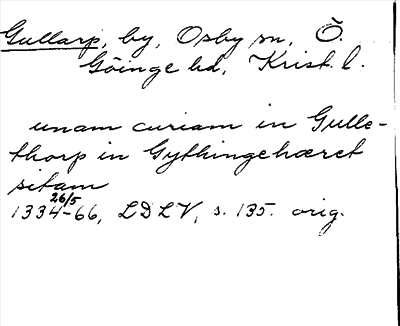 Gullarp, by, Osby sn, Ö.
Göinge hd, Krist. l.
unam curiam in Gulle-
thorp in Gythingehæret
sitam
26/5
1334-66, LDLV, s. 135. orig.